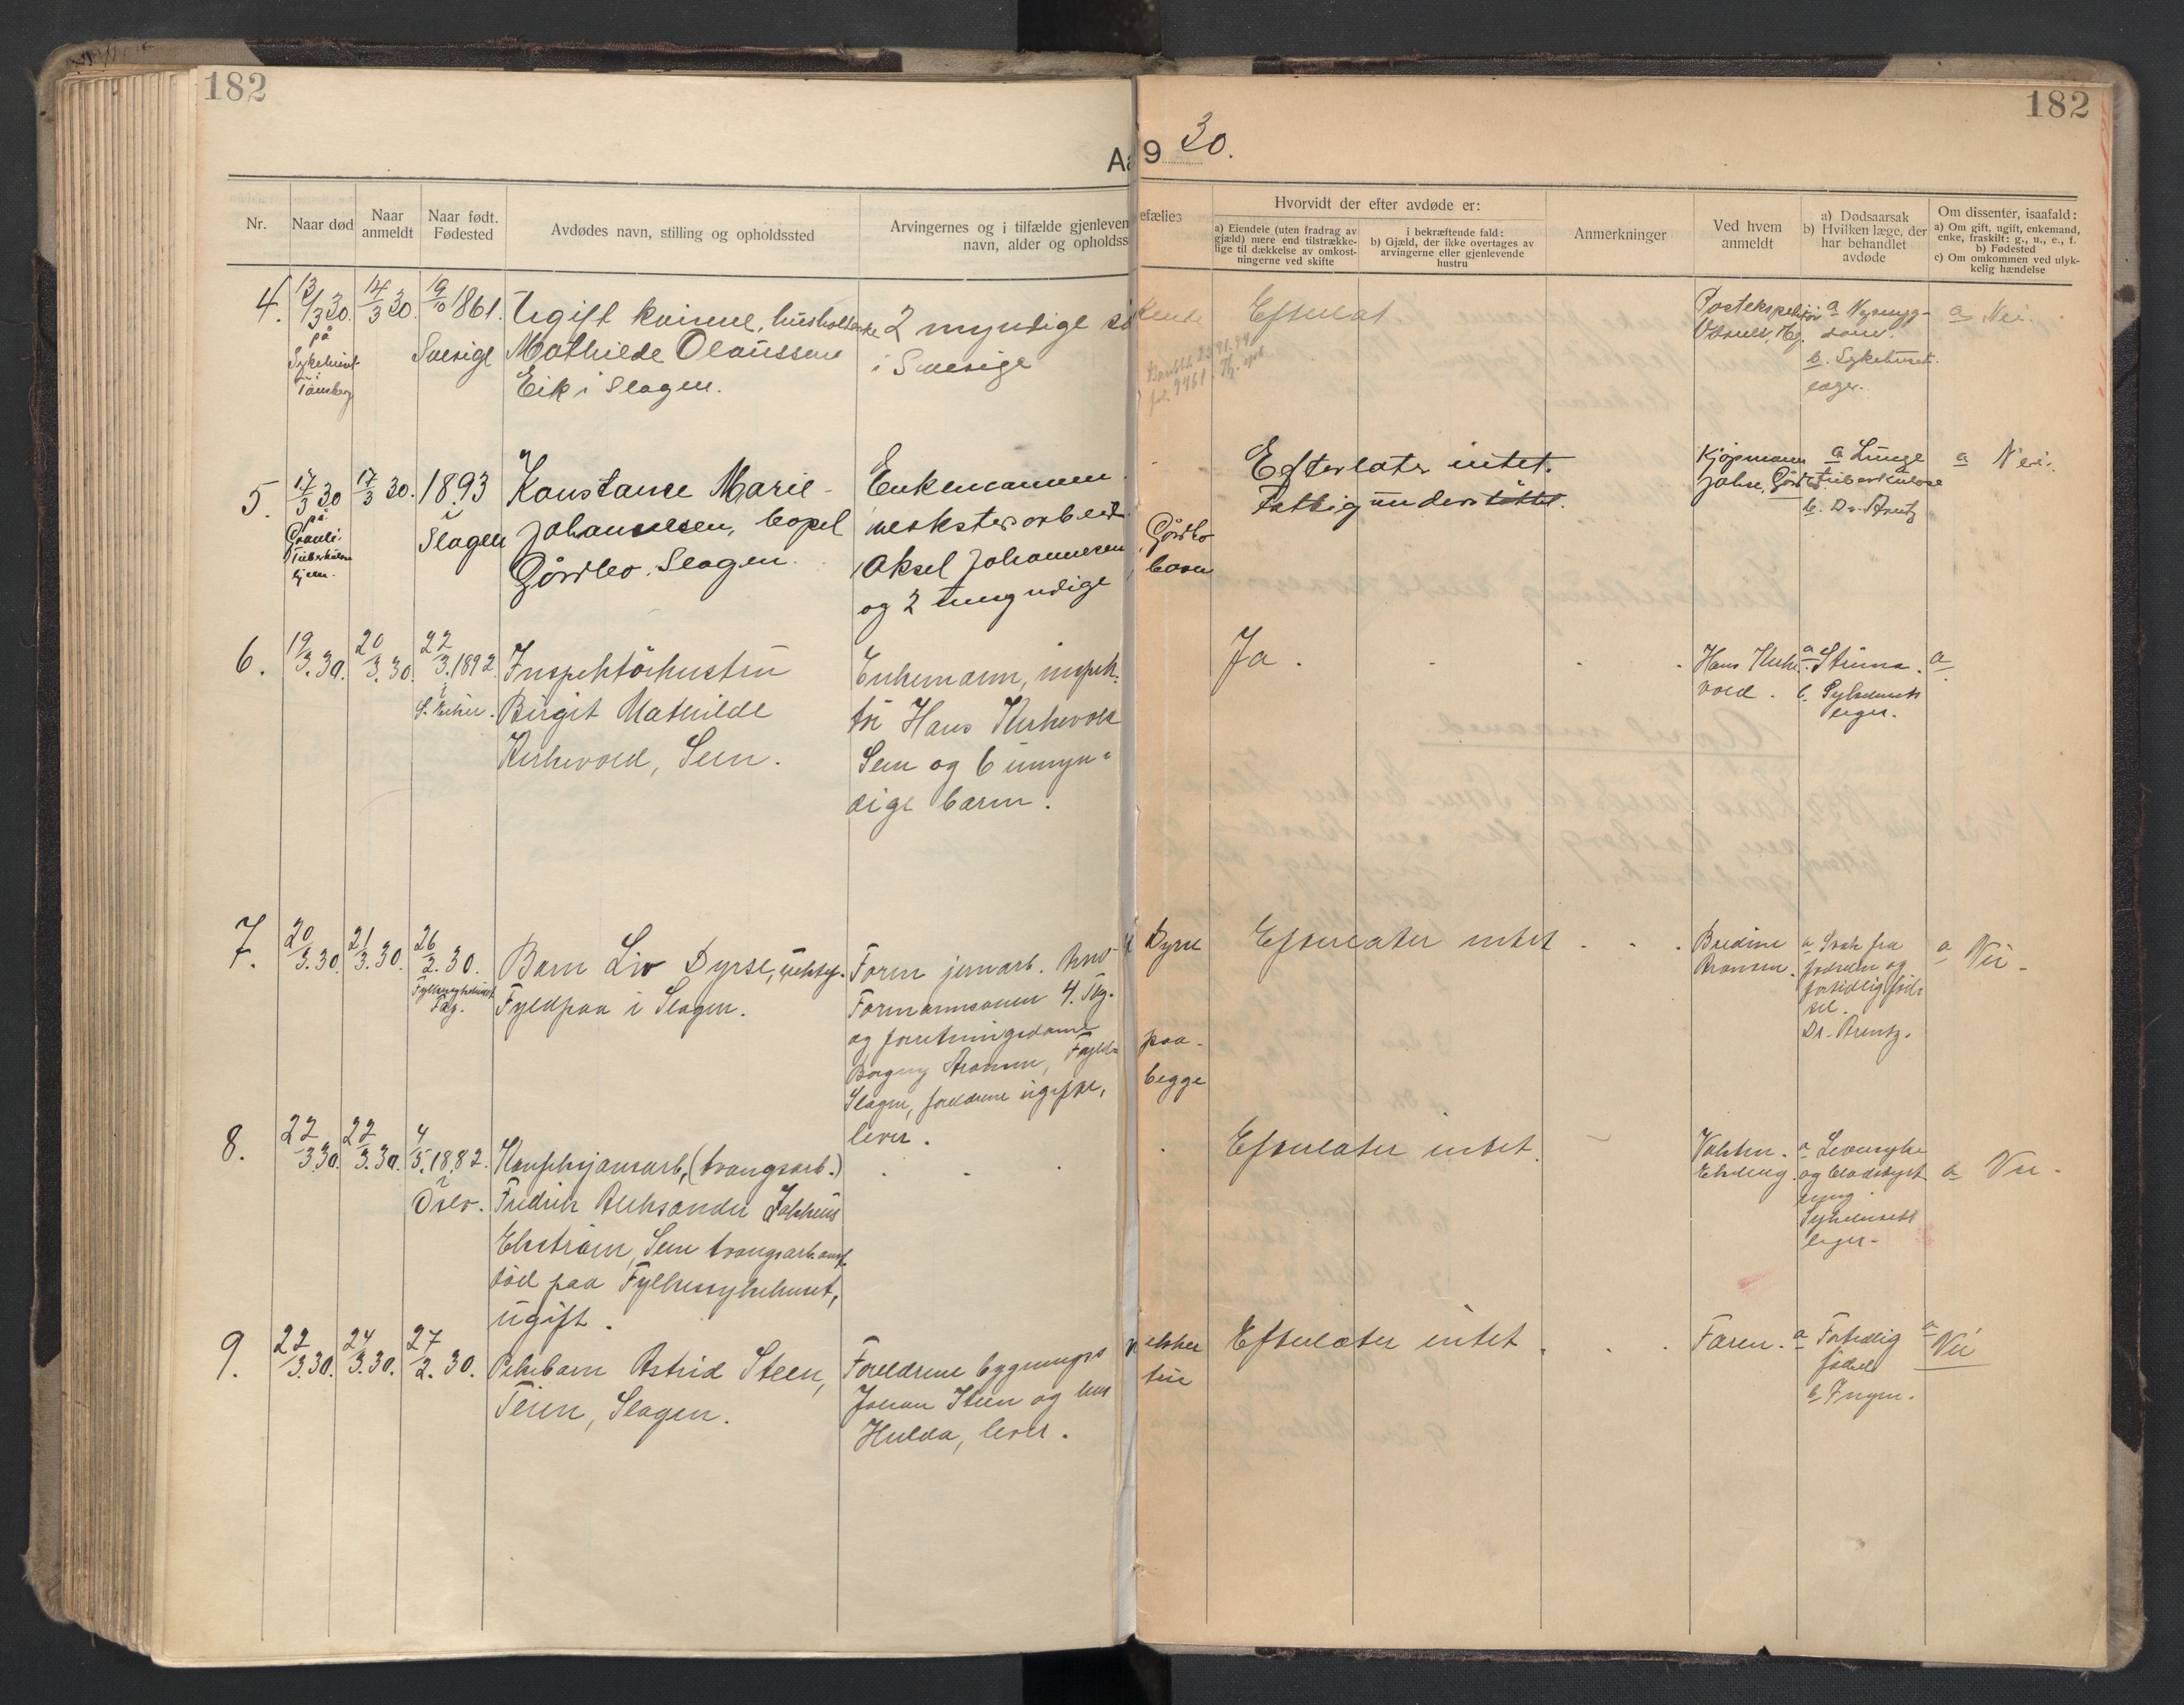 182
182
Aa
9 30.
Nr.
Naar død
Naar anmeldt
Naar født. Fødested
Avdødes navn, stilling og opholdssted
Arvingernes og i tilfælde gjenleven
navn, alder og opholdss
efælles
Hvorvidt der efter avdøde er:
a) Eiendele (uten fradrag av gjæld) mere end tilstrække-lige til dækkelse av omkost-ningerne ved skifte
i bekræftende fald:
b) Gjæld, der ikke overtages av arvingerne eller gjenlevende hustru
Anmerkninger
Ved hvem anmeldt
a) Dødsaarsak
b) Hvilken læge, der har behandlet avdøde
Om dissenter, isaafald:
a) Om gift, ugift, enkemand, enke, fraskilt: g., u., e., f.
b) Fødested
c) Om omkommen ved ulyk-kelig hændelse
4.
13/3 30.
på
Sykehuset
i
Tønsberg
14/3 30.
19/10 1861.
Sverige
Ugift kvinne, husholderske
Mathilde Olaussen
Eik i Slagen.
2 myndige sø
i Sverige
a Nysyg-
dom.
b. Sykehuset
læge.
a Nei.
5.
17/3 30
på
Granli
Tuberkulose
hjem.
17/3 30.
1893
i
Slagen
Konstance Marie
Johannessen, Copel
Gårdbo. Slagen.
Enkemannen
verkstedarbeid
Aksel Johannesen
og 2 umyndige
, Gårdbo
barn
Efterlater intet.
Fattigunderstøttet.
Kjøpmann
Johs. Gårdbo
a Lunge
tuberkulose
b. Dr. Arentz
a Nei.
6.
19/3.30.
20/3.30.
22/3.1892
Inspektørhustru
Birgit Mathilde
Kirkevold, Sem.
Enkemann, inspek-
tør Hans Kirkevold
Sem og 6 umyn-
dige barn.
Ja.
Hans Kirke-
vold.
a Struma.
b. Sykehusets
læger.
a
7.
20/3.30.
21/3.30.
26/2.30.
Fylkessykehuset
Tbg.
Barn Liv Dyrse, uekte.
Fyldpaa i Slagen.
Form jernarb.
Formannsgaten 4. Tbg.
og forretningsdame
Borgny Aronsen, Fyld-
Slagen, foreldrene ugifte,
lever.
Dyrse
paa-
begge
Efterlater intet
Bredine
Aronsen.
a Svak fra
fødselen og
fortidlig fød-
sel.
Dr. Arentz.
a Nei.
8.
22/3.30.
22/3.30.
4/5.1882.
i
Oslo.
(tvangsarb.)
Fredrik Aleksander Josefus
Ekstrøm, Sem tvangsarb.anst.
død paa Fylkessykehuset,
ugift.
Efterlater intet.
a Leversyke
og blodstyrt
Sykehusets
læger.
a Nei.
9.
22/3.30.
24/3.30.
27/2.30.
Pikebarn Astrid Steen,
Teien, Slagen.
Foreldrene bygnings
Johan Steen og hus
Hulda, lever.
tru
Efterlater intet
Faren.
a Fortidlig
fødsel
b. Ingen.
a Nei